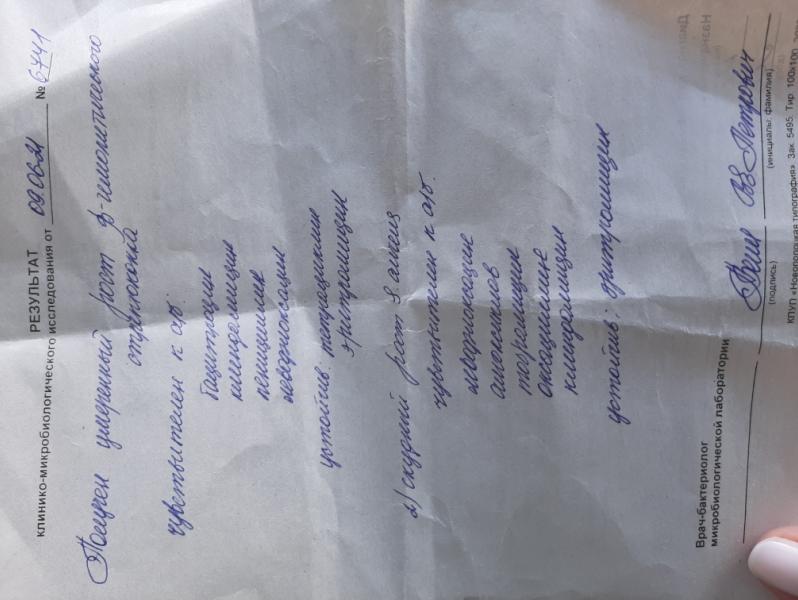 РЕЗУЛЬТАТ
клинико-микробиологического исследования от 09.06.21 № 6741
Получен умеренный рост β-гемолитического
стрептококка
чувствителен к а/б:
бацитрацин
клиндамицин
пенициллин
левофлоксацин
устойчив: тетрациклин
эритромицин
2) скудный рост S. aureus
чувствителен к а/б:
левофлоксацин
амоксиклав
оксациллин
клиндамицин
устойчив: эритромицин
Врач-бактериолог
микробиологической лаборатории
(подпись)
(инициалы, фамилия)
КПУП «Новополоцкая типография» Зак. 5495. Тир. 100х100